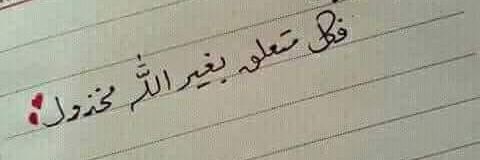 فكل متعلق بغير الله مخذول